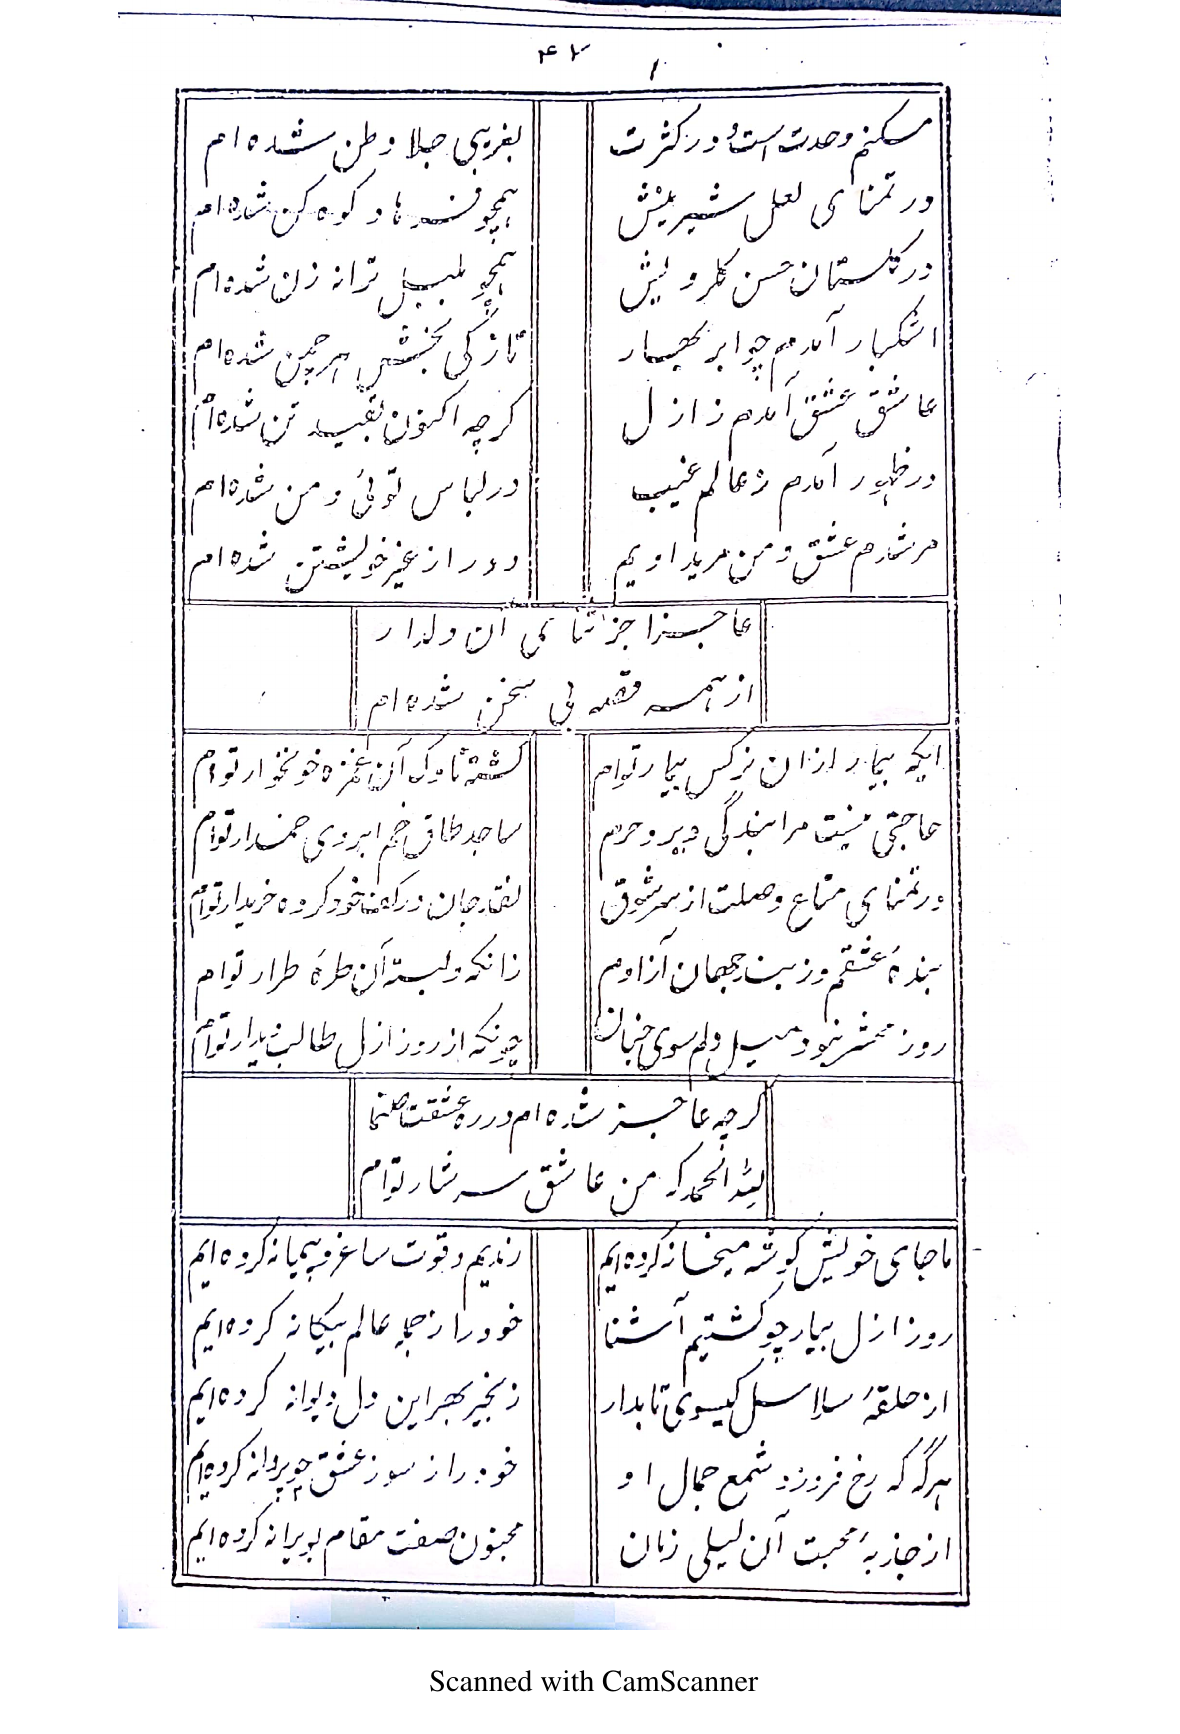 ۴۲
مسکنم وحدت است و در کثرت بغریبی جلا وطن شده ام
در تمنای لعل شیرینش همچو فرهاد کوه کن شده ام
در گلستان حسن گلرویش همچو بلبل ترانه زن شده ام
اشکبار آمدم چو ابر بهار تازگی بخش هر چمن شده ام
عاشق عشق آمدم ز ازل گرچه اکنون بقید تن شده ام
در ظهور آمدم ز عالم غیب در لباس توئی و من شده ام
مرشدم عشق و من مرید اویم دور از غیر خویشتن شده ام
عاجزا جز ثنای آن دلدار
از همه قصه بی سخن شده ام
ایکه بیمار ازان نرگس بیمار توام کشتهٔ ناوک آن غمزه خونخوار توام
حاجتی نیست مرا بندگی دیر و حرم ساجد طاق خم ابروی خمدار توام
در تمنای متاع وصلت از سر شوق نقد جان در کف خود کرده خریدار توام
بندهٔ عشقم و زبند جهان آزادم زانکه دلبسته آن طرهٔ طرار توام
روز محشر نبود میل دلم سوی جنان چونکه از روز ازل طالب دیدار توام
گرچه عاجز شده ام در ره عشقت صنما
لله الحمد که من عاشق سرشار توام
ما جای خویش گوشهٔ میخانه کرده ایم رندیم و قوت ساغر و پیمانه کرده ایم
روز ازل بیار چو گشتیم آشنا خود را ز جمله عالم بیگانه کرده ایم
از حلقهٔ سلاسل گیسوی تابدار زنجیر بهر این دل دیوانه کرده ایم
هرگه که رخ فروزد شمع جمال او خود را ز سوز عشق چو پروانه کرده ایم
از جذبهٔ محبت آن لیلی زمان مجنون صفت مقام بویرانه کرده ایم
Scanned with CamScanner